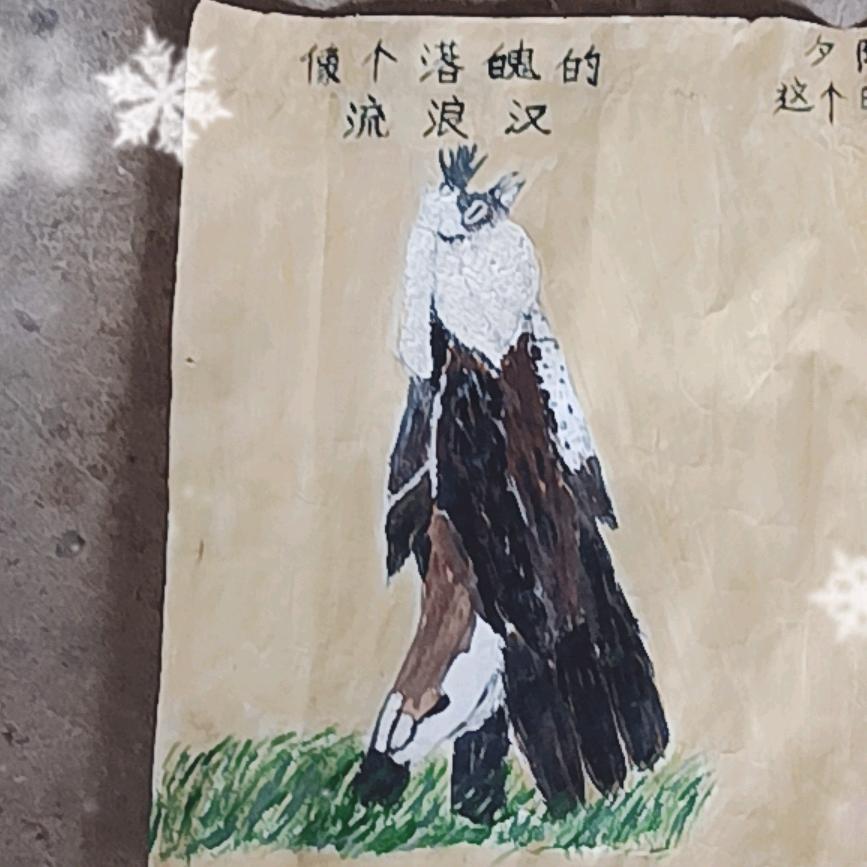 像个落魄的
流浪汉
夕
这个